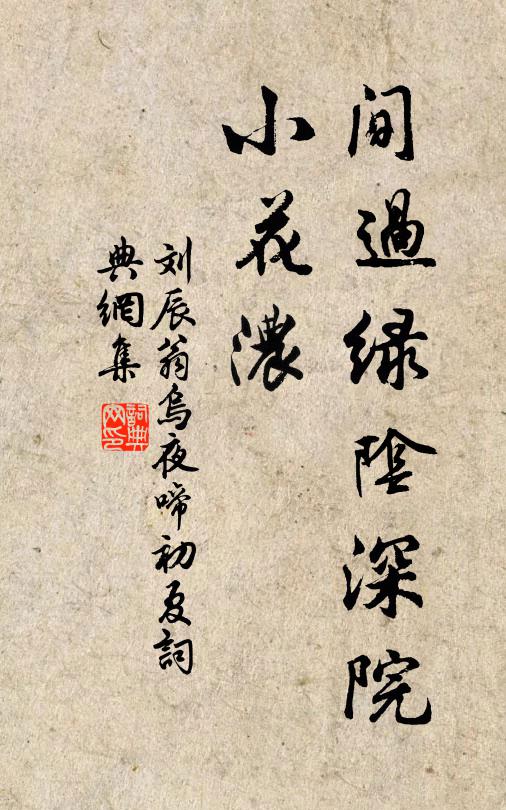 间過緑陰深院
小花濃
刘辰翁烏夜啼初夏詞
典網集
詞典网印